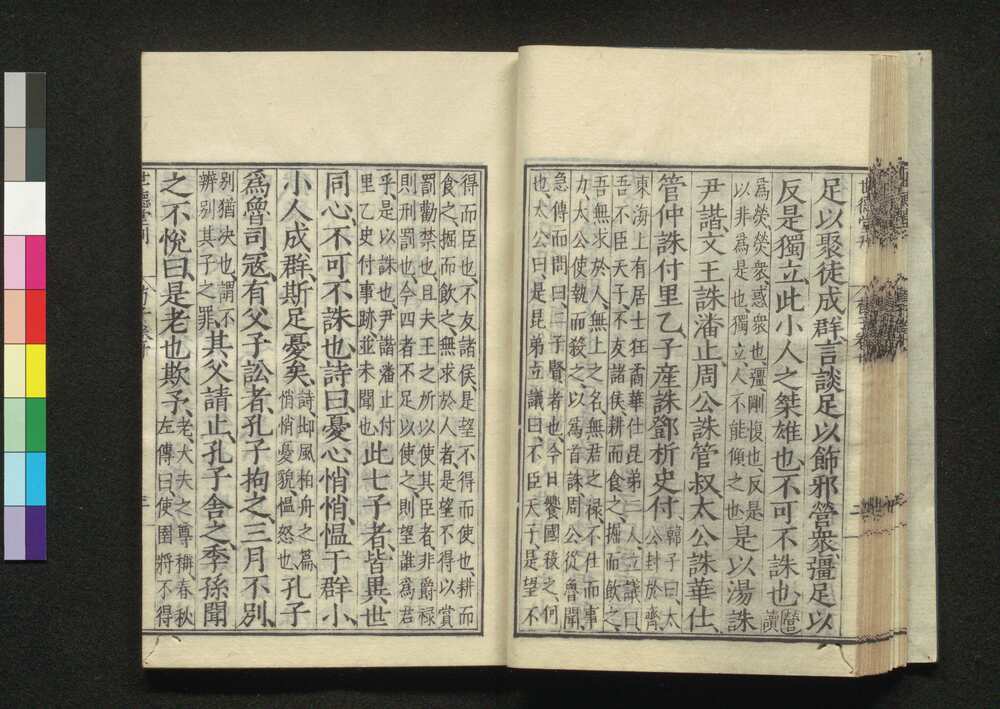 足以聚徒成群、言談足以飾邪管衆、彊足以
反是獨立、此小人之桀雄也、不可不誅也、讀
為熒、熒衆惑衆也、彊、剛愎也、反是
以非為是也、獨立人不能傾之也、是以湯誅
尹諧、文王誅潘止、周公誅管叔、太公誅華仕、
管仲誅付里乙、子産誅鄧析史付、韓子曰、太
公封於齊、
東海上有居士狂矞華仕昆弟二人立議曰
吾不臣天子、不友諸侯、耕而食之、掘而飲之、
吾無求於人、無上之名、無君之禄、不仕而事
力、太公使執而殺之、以為首誅、周公從魯聞、
急傳而問曰、二子賢者也、今日饗國殺之、何
也、太公曰、是昆弟立議曰、不臣天子、是望不
得而臣也、不友諸侯、是望不得而使也、耕而
食之、掘而飲之、無求於人者、是望不得以賞
罰勸禁也、且夫王之所以使其臣者、非爵禄
則刑罰也、今四者不足以使之、則望誰為君
乎、是以誅也、尹諧潘止付
里乙史付事跡、並未聞也、此七子者、皆異世
同心、不可不誅也、詩曰、憂心悄悄、慍于群小、
小人成群、斯足憂矣、詩邶風柏舟之篇、
悄悄憂貌慍怒也、孔子
為魯司冦、有父子訟者、孔子拘之、三月不別、
別猶决也、謂不
辨別其子之罪、其父請止、孔子舍之、季孫聞
之不悅曰、是老也欺予、老、大夫之尊稱、春秋
左傳曰、使圉將不得
世德堂刊